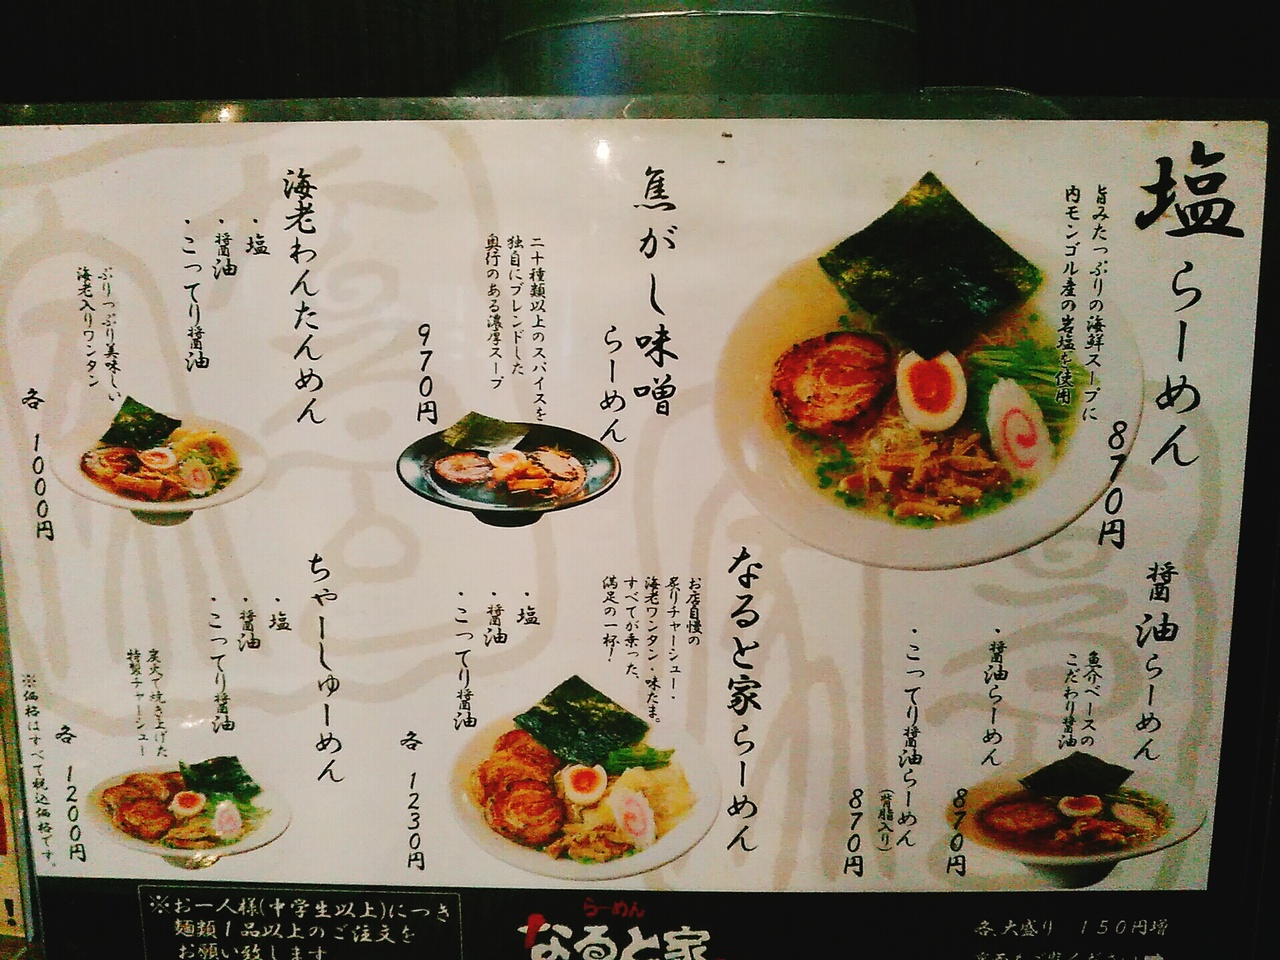 塩らーめん
旨みたっぷりの海鮮スープに
内モンゴル産の岩塩を使用
870円
醤油らーめん
魚介ベースの
こだわり醤油
・醤油らーめん
870円
・こってり醤油らーめん
(背脂入り)
870円
焦がし味噌
らーめん
二十種類以上のスパイスを
独自にブレンドした
奥行のある濃厚スープ
970円
なると家らーめん
お店自慢の
炙りチャーシュー・
海老ワンタン・味たま。
すべてが乗った、
満足の一杯!
・塩
・醤油
・こってり醤油
各 1230円
海老わんたんめん
・塩
・醤油
・こってり醤油
ぷりっぷり美味しい
海老入りワンタン
各 1000円
ちゃーしゅーめん
・塩
・醤油
・こってり醤油
炭火で焼き上げた
特製チャーシュー
各 1200円
※価格はすべて税込価格です。
※お一人様(中学生以上)につき
麺類1品以上のご注文を
お願い致します
らーめん
なると家
各大盛り 150円増